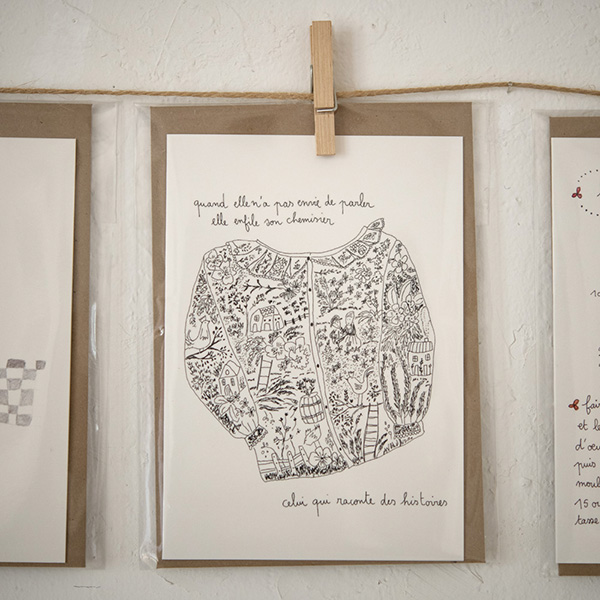 quand elle n'a pas envie de parler
elle enfile son chemisier
celui qui raconte des histoires
fai
et le
d'œu
puis
moul
15 ou
tasse